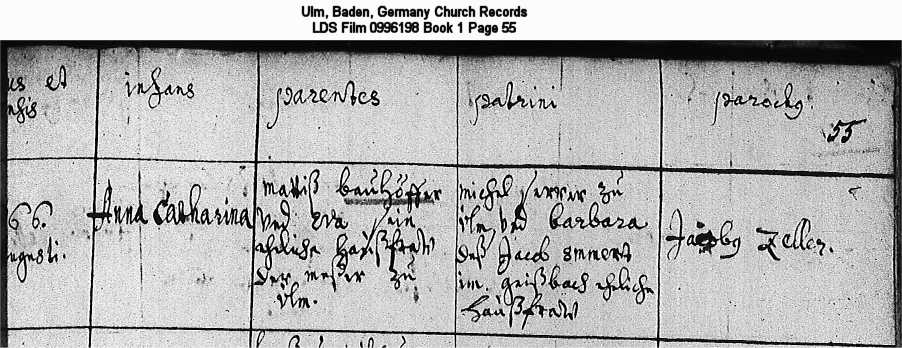 Ulm, Baden, Germany Church Records
LDS Film 0996198 Book 1 Page 55
us et
infans
parentes
patrini
parochy
55
66.
ugusti.
Anna Catharina
Mattiß bauhöffer
vnd Eva sein
eheliche haußfraw
der meßer zu
Ulm.
Michel zu
Ulm vnd barbara
deß Jacob
im geißbach eheliche
haußfraw
Jacoby Zeller.